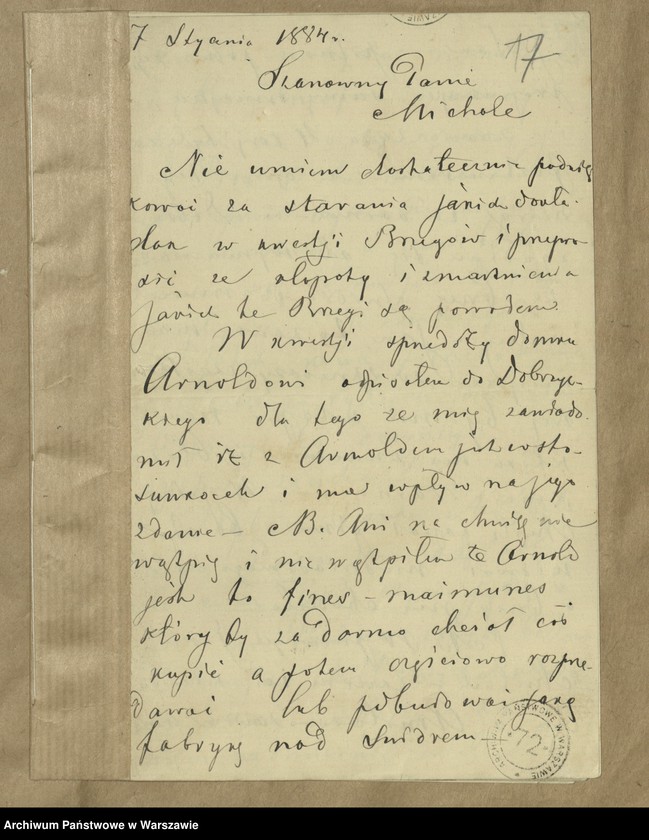 7 Stycznia 1884 r.
17
Szanowny Panie
Michale
Nie umiem dostatecznie podzię
kować za starania jakich dokła-
dan w kwestji Brzegów i przepro-
sić ze kłopoty i zmartwienia
jakich te Brzegi są powodem.
W kwestji spredoży domu
Arnoldowi odpisałem do Dobrzyc-
kiego dla tego że mię zawiado-
mił iż z Arnoldem jest w sto-
sunkach i ma wpływ na jego
zdanie — NB. Ani na chwilę nie
wątpię i nie wątpiłem że Arnold
jest to fines - maimunes
który by za darmo chciał coś
kupić a potem częściowo rozprze-
dawać lub pobudować jaką
fabrykę nad Świdrem —
ARCHIWUM PAŃSTWOWE W WARSZAWIE
72
Archiwum Państwowe w Warszawie